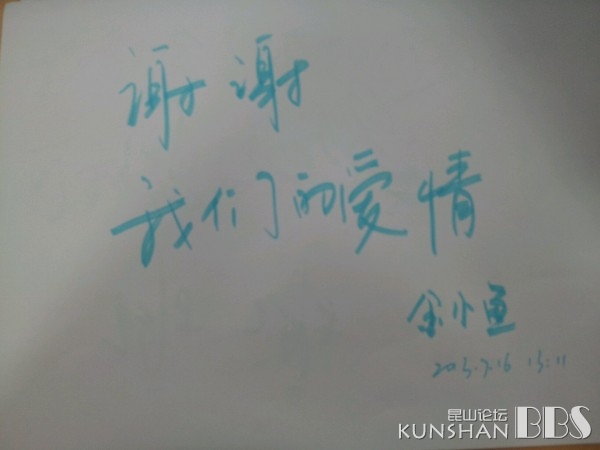 谢谢
我们的爱情
余小鱼
2015.7.16 15:11
昆山论坛
KUNSHAN BBS